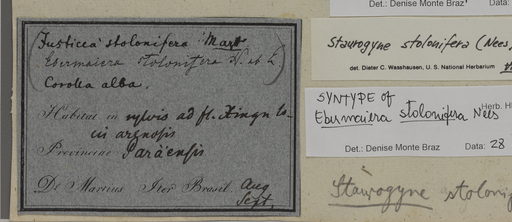 Justicea stolonifera Mart
Ebermaiera stolonifera N. et L
Corolla alba.
Habitat in sylvis ad fl. Xingu lo-
cis argosis
Provinciae Paraënsis
Dr Martius Iter Brasil. Aug
Sept.
Det.: Denise Monte Braz
Data:
Staurogyne stolonifera (Nees)
det. Dieter C. Wasshausen, U. S. National Herbarium
SYNTYPE of
Ebermaiera stolonifera Nees
Herb.
Det.: Denise Monte Braz Data: 28
Staurogyne stolonif